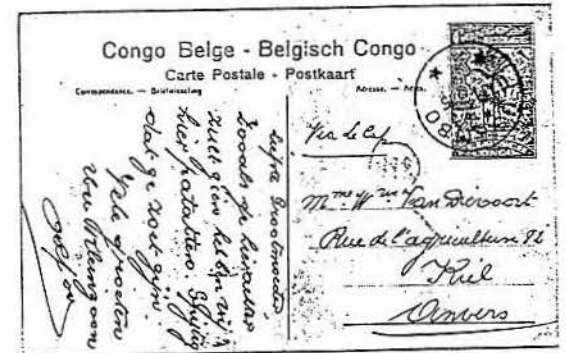 Congo Belge - Belgisch Congo
Carte Postale - Postkaart
Correspondance. — Briefwisseling
Adresse. — Adres.
Liefste Grootmoeder
Zooals ge hierachter
zult zien hebben wij
hier patatten. Spijtig
dat ge niet zijn
Vele groeten
Uw kleinzoon
Via Le Cap
Mme Wwe Van Dievoort
Rue de l'agriculture 92
Kiel
Anvers